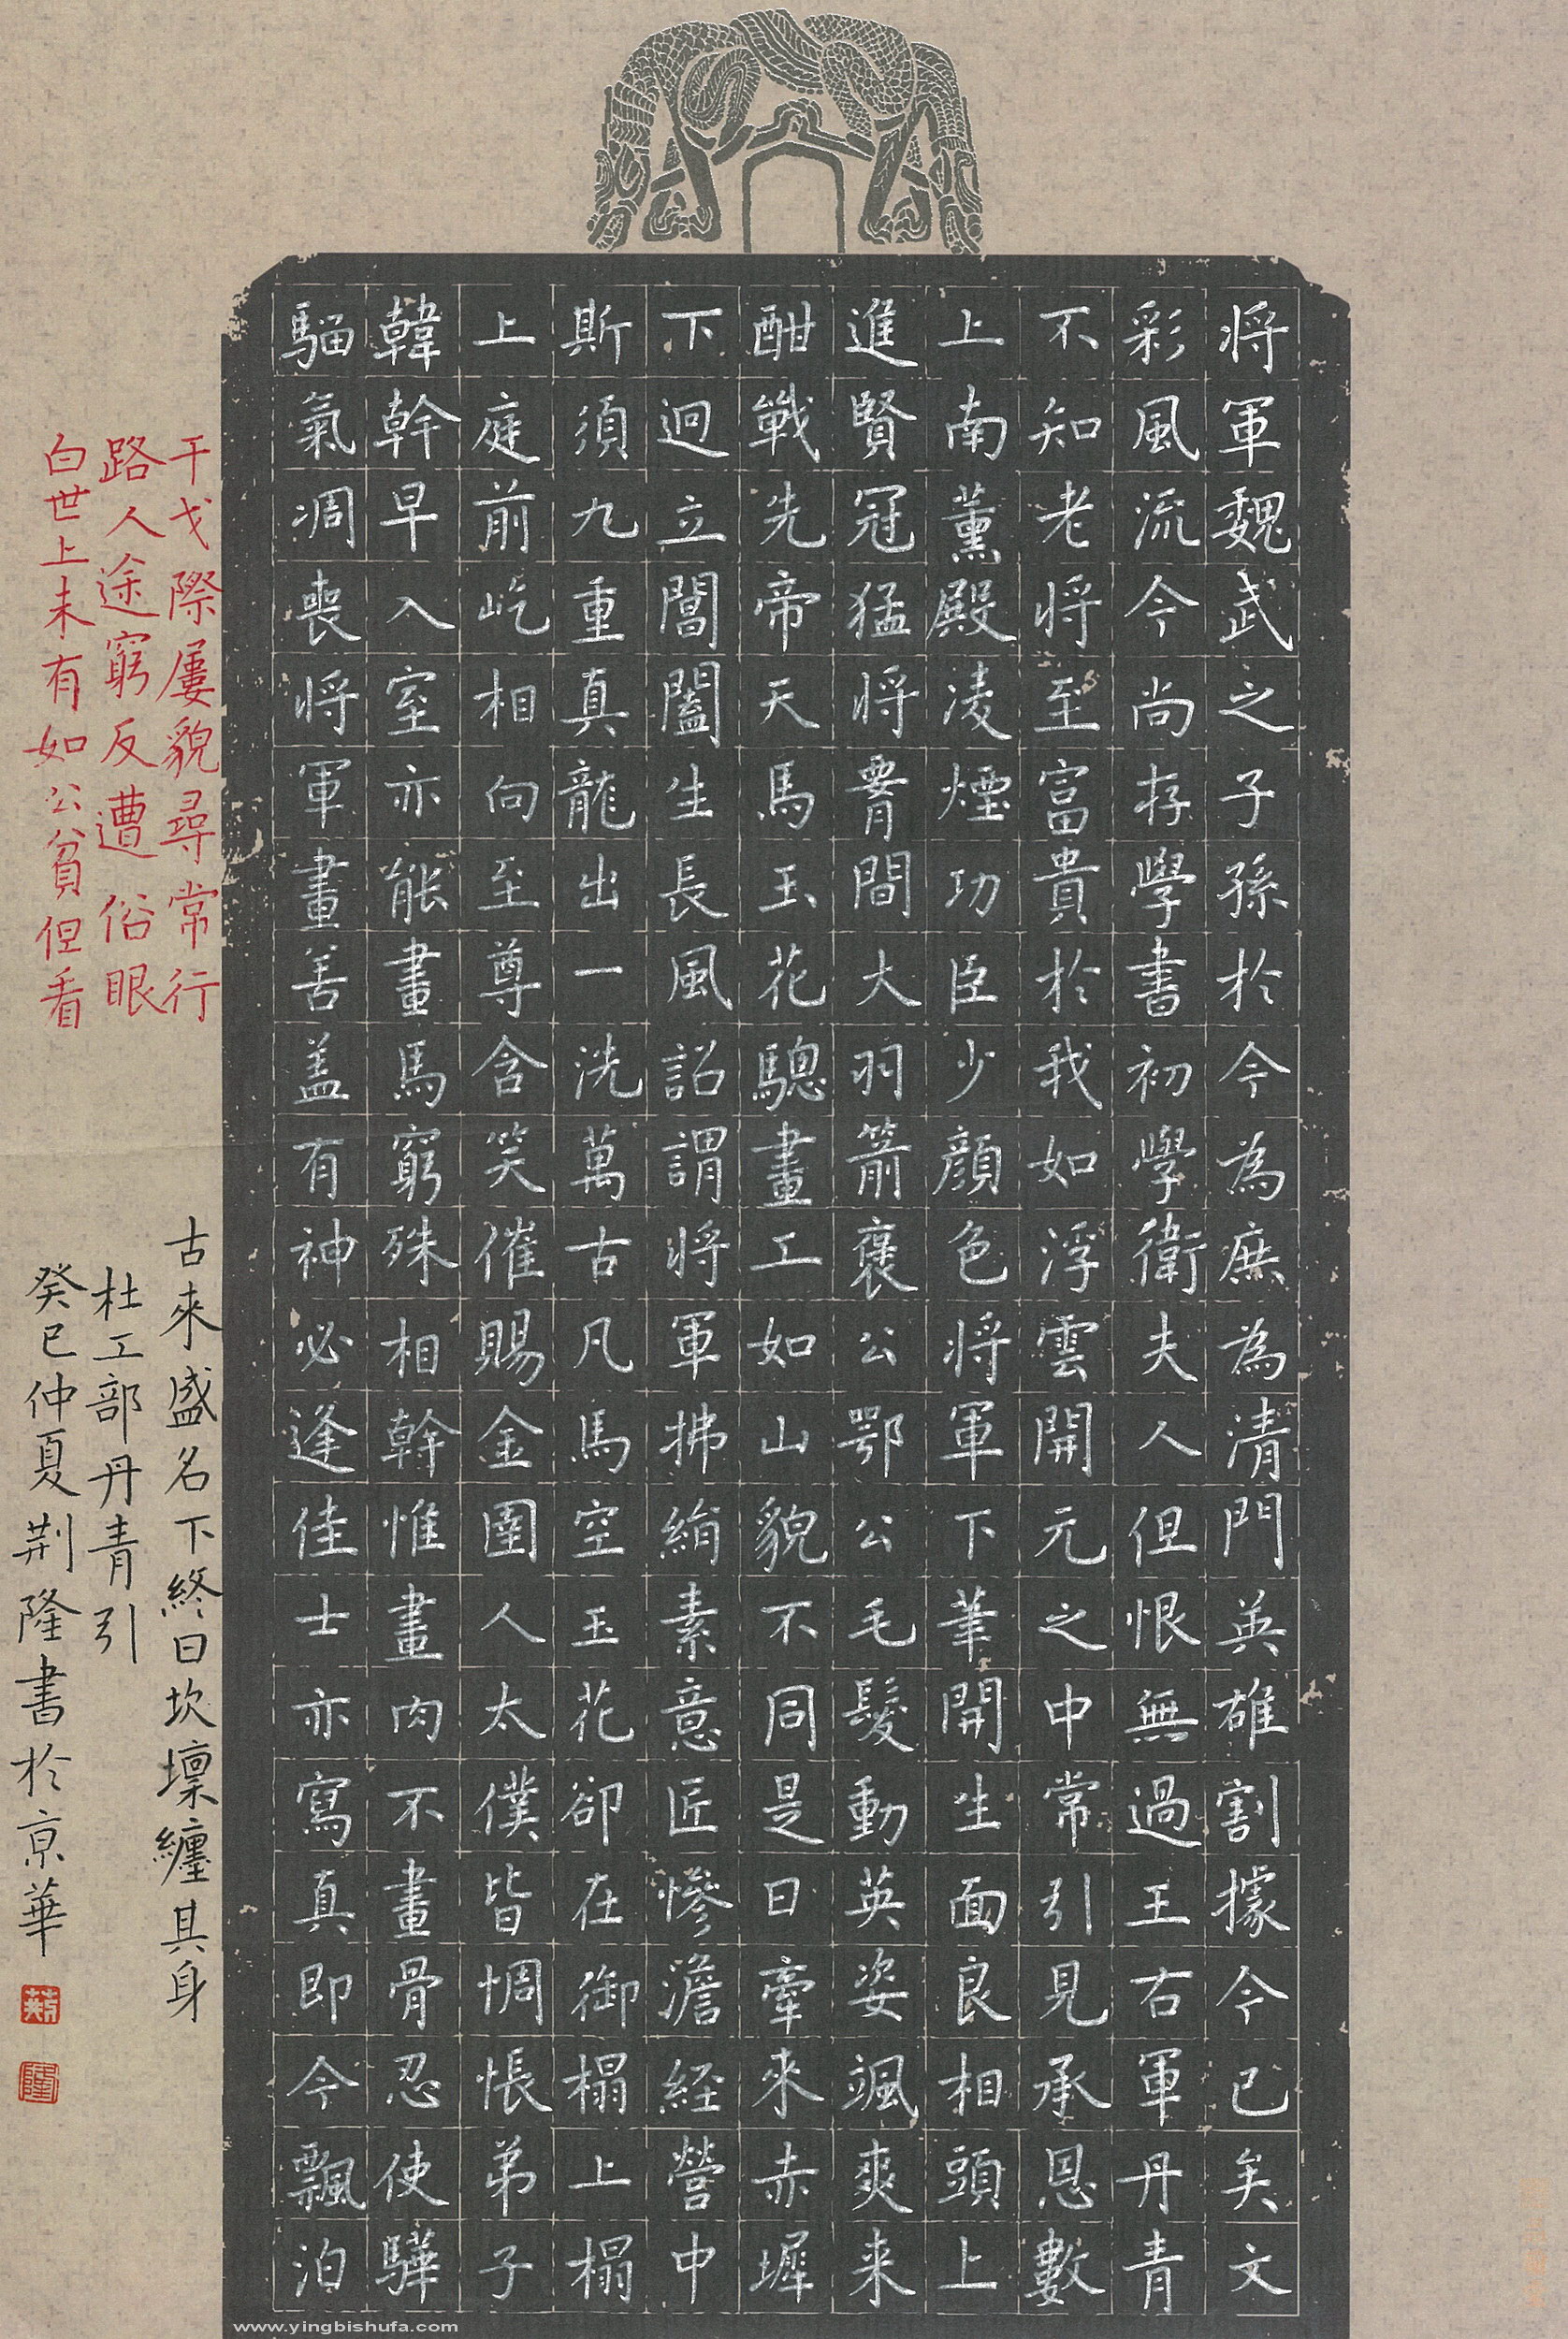 将軍魏武之子孫於今為庶為清門英雄割據今已矣文
彩風流今尚存學書初學衛夫人但恨無過王右軍丹青
不知老将至富貴於我如浮雲開元之中常引見承恩數
上南薰殿凌煙功臣少顔色将軍下筆開生面良相頭上
進賢冠猛将腰間大羽箭褒公鄂公毛髮動英姿颯爽来
酣戰先帝天馬玉花驄畫工如山貌不同是日牽來赤墀
下迥立閶闔生長風詔謂将軍拂絹素意匠慘澹經營中
斯須九重真龍出一洗萬古凡馬空玉花卻在御榻上榻
上庭前屹相向至尊含笑催賜金圉人太僕皆惆悵弟子
韓幹早入室亦能畫馬窮殊相幹惟畫肉不畫骨忍使驊
騮氣凋喪将軍畫善盖有神必逢佳士亦寫真即今飄泊
干戈際屢貌尋常行
路人途窮反遭俗眼
白世上未有如公貧但看
古來盛名下終日坎壈纏其身
杜工部丹青引
癸巳仲夏荆隆書於京華
荆
隆
www.yingbishufa.com